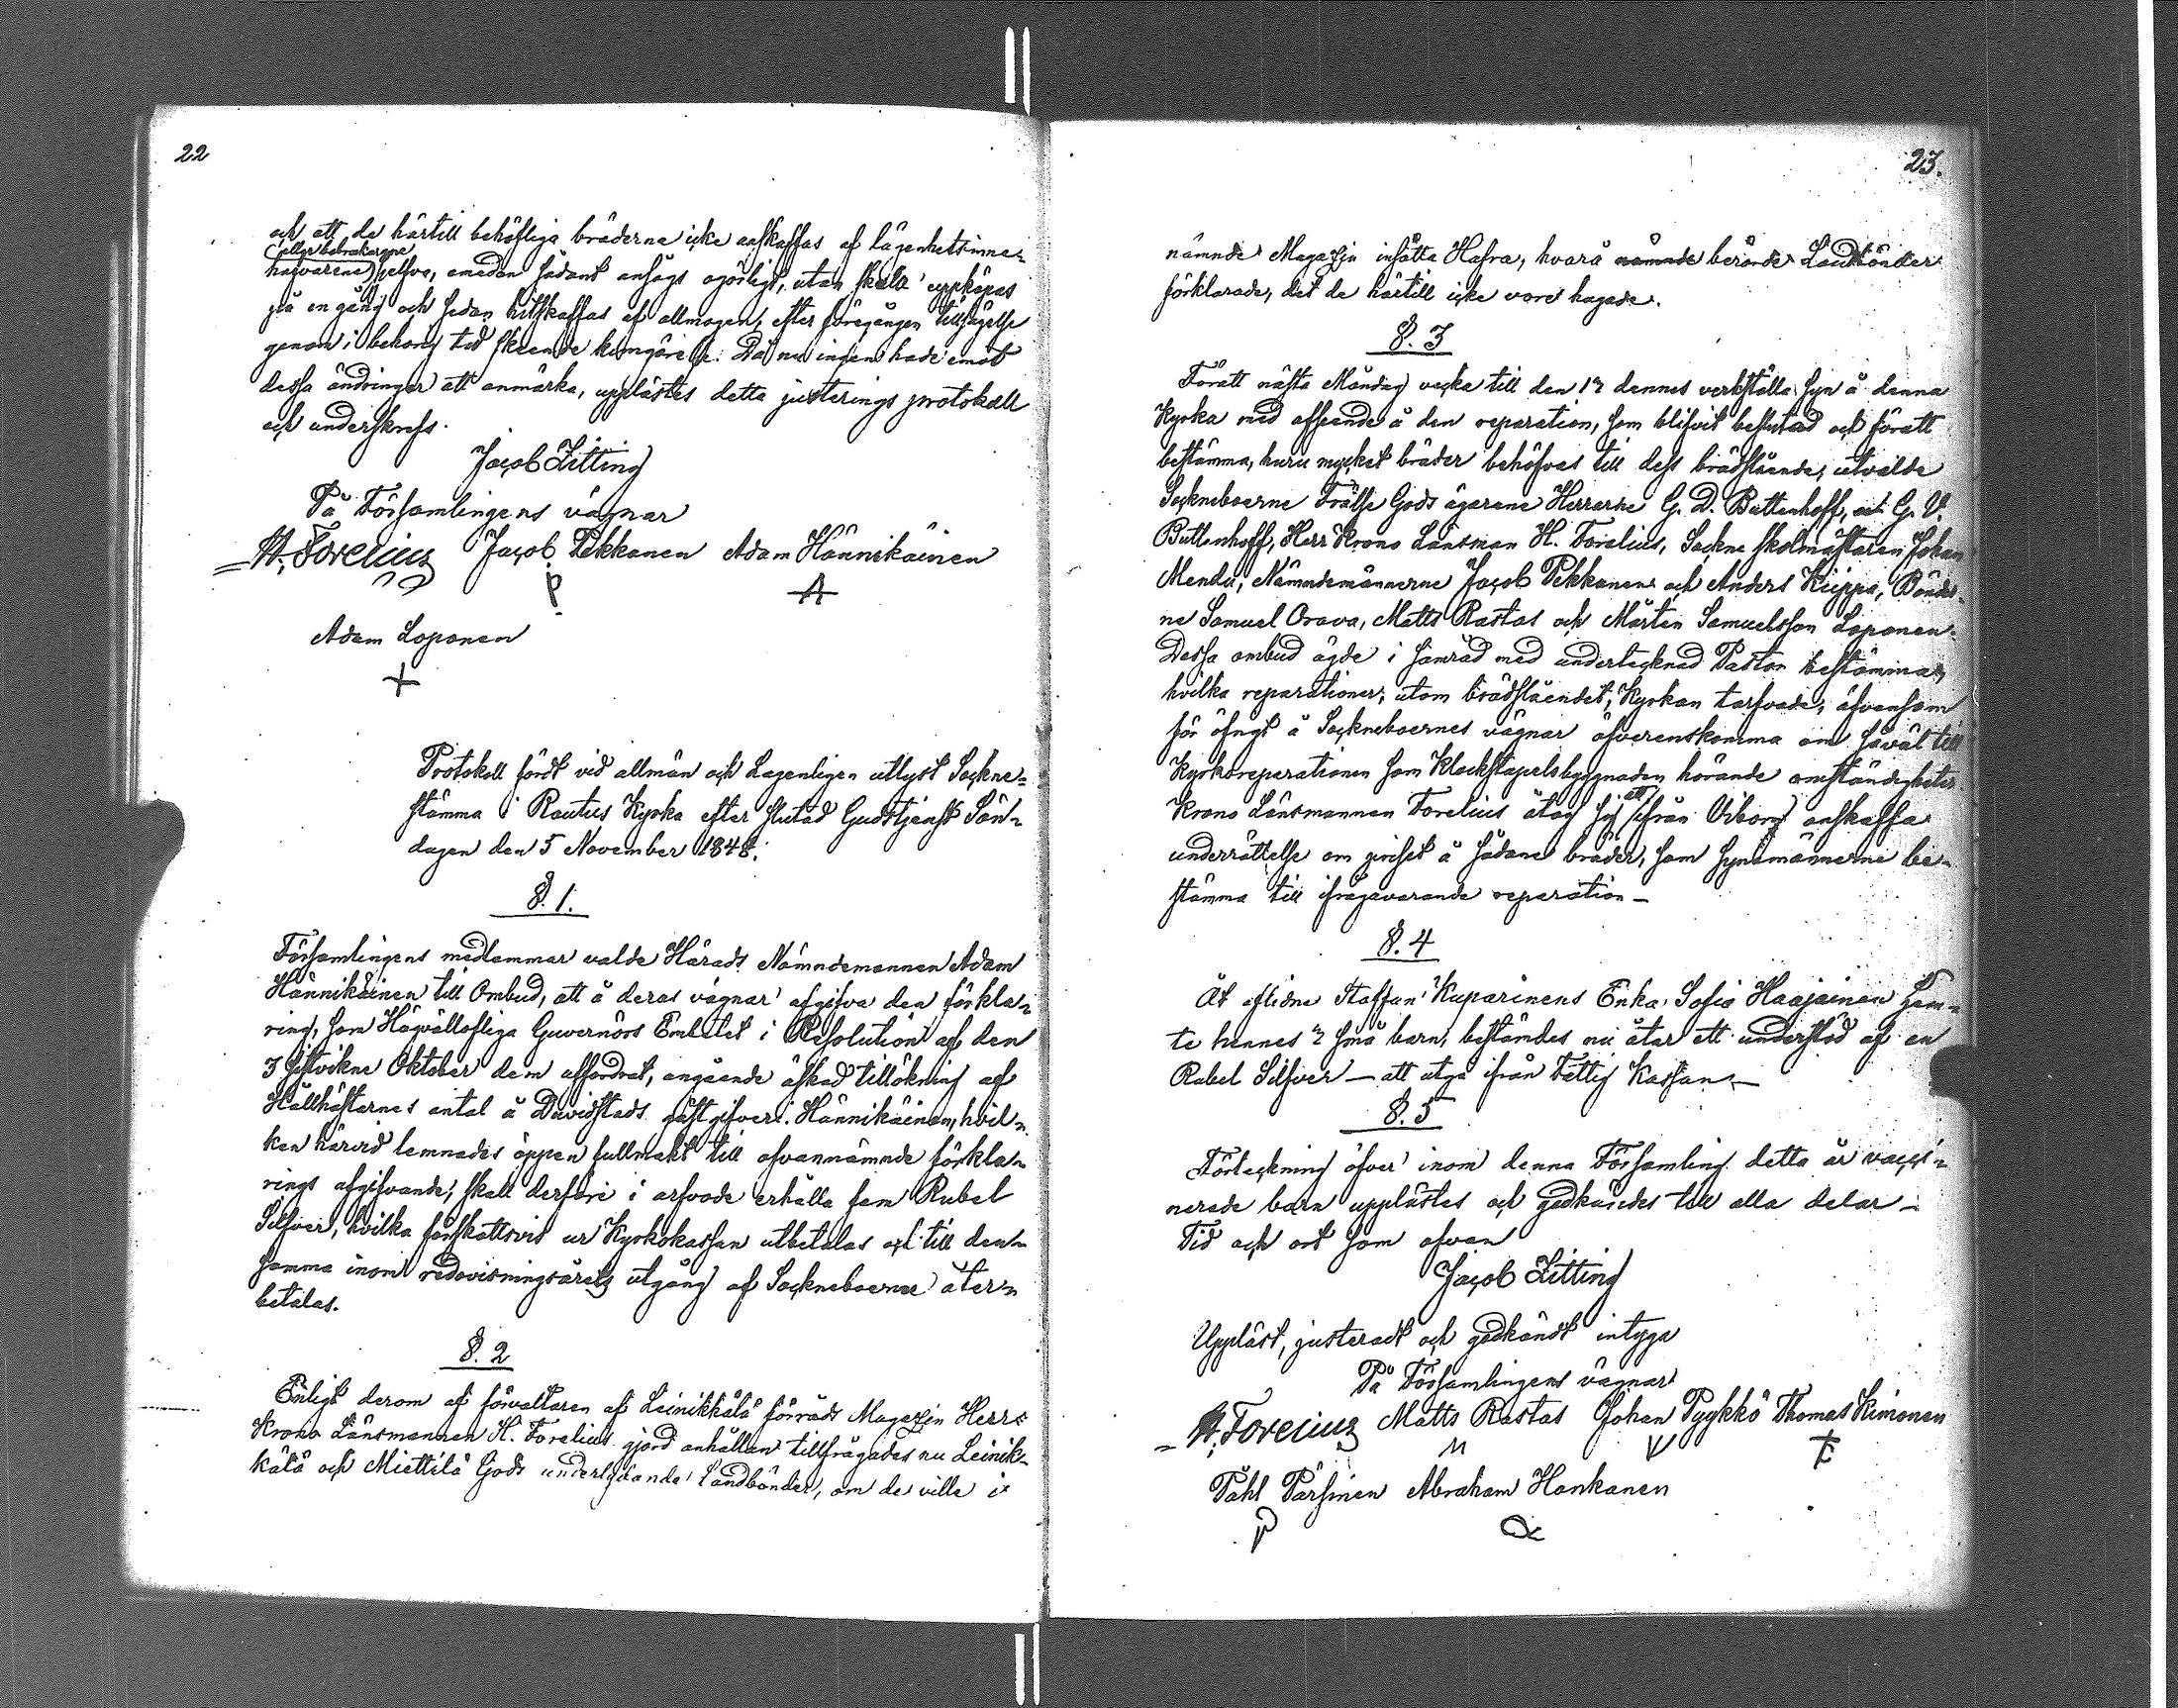 22
och att de härtill behöfliga bräderne icke anskaffas af lägenhetsinne-
(eller bebrukarene)
hafvarene sjelfva, emedan sådant ansågs ogörligt, utan skola uppköpas
på en gång och sedan hitskaffas af allmogen, efter föregången tillsägelse
genom i behörig tid skeende kungörelse. Då nu ingen hade emot
dessa ändringar att anmärka, upplästes detta justerings protokoll
och underskrefs.
Jacob Zitting
På Församlingens vägnar
H. Forelius Jacob Pekkanen Adam Hännikäinen
Adam Loponen
Protokoll fördt vid allmän och Lagenligen utlyst Sockne-
stämma i Rautus Kyrka efter slutad Gudstjenst Sön-
dagen den 5 November 1848.
§. 1.
Församlingens medlemmar valde Härads Nämndemannen Adam
Hännikäinen till Ombud, att å deras vägnar afgifva den förkla-
ring, som Högvällofliga Guvernörs Embetet i Resolution af den
3 sistvikne Oktober dem affordrat, angående äskad tillökning af
Hållhästarnes antal å Davidstads gästgifveri. Hännikäinen, hvil-
ken härvid lemnades öppen fullmakt till ofvannämnde förkla-
rings afgifvande, skall derföre i arfvode erhålla fem Rubel
Silfver, hvilka förskottsvis ur Kyrkokassan utbetalas och till den-
samma inom redovisningsårets utgång af Sockneboerne åter-
betalas.
§. 2
Enligt derom af förvaltaren af Leinikkälä förråds Magazin Herr
Krono Länsmannen H. Forelius gjord anhållan tillfrågades nu Leinik-
kälä och Miettilä Gods underlydande Landbönder, om de ville i
23.
nämnde Magazin insätta Hafra, hvarå nämnde berörde Landbönder
förklarade, det de härtill icke voro hagade.
§. 3
Föratt nästa Måndag vecka till den 12 dennes verkställa syn å denna
Kyrka med afseende å den reparation, som blifvit beslutad och föratt
bestämma, huru mycket bräder behöfvas till dess brädslående, utvalde
Sockneboerne Frälse Gods ägarene Herrarne G. D. Buttenhoff, och G. V.
Buttenhoff, Herr Krono Länsman H. Forelius, Sockne skolmästaren Johan
Mendu, Nämndemännerne Jacob Pekkanen och Anders Kiippa, Bönder-
ne Samuel Orava, Matts Rastas och Mårten Samuelsson Loponen.
Dessa ombud ägde i samråd med undertecknad Pastor bestämma,
hvilka reparationer, utom brädslåendet, Kyrkan tarfvade, äfvensom
för öfrigt å Sockneboernes vägnar öfverenskomma om såväl till
Kyrkoreparationen som Klockstapelsbyggnaden hörande omständigheter.
Krono Länsmannen Forelius åtog sig att ifrån Viborg anskaffa
underrättelse om priset å sådane bräder, som synemännerne be-
stämma till ifrågavarande reparation -
§. 4
Åt aflidne Staffan Kuparinens Enka Sofia Haajainen
te hennes 2 små barn, bestämdes nu åter ett understöd af en
Rubel Silfver - att utgå ifrån Fattig Kassan. -
§. 5
Förteckning öfver inom denna Församling detta år vacci-
nerade barn upplästes och godkändes till alla delar -
Tid och ort som ofvan
Jacob Zitting
Uppläst, justeradt och godkändt intyga
På Församlingens vägnar
H. Forelius Matts Rastas Johan Pyykkö Thomas Kimonen
Påhl Pärsinen Abraham Honkanen